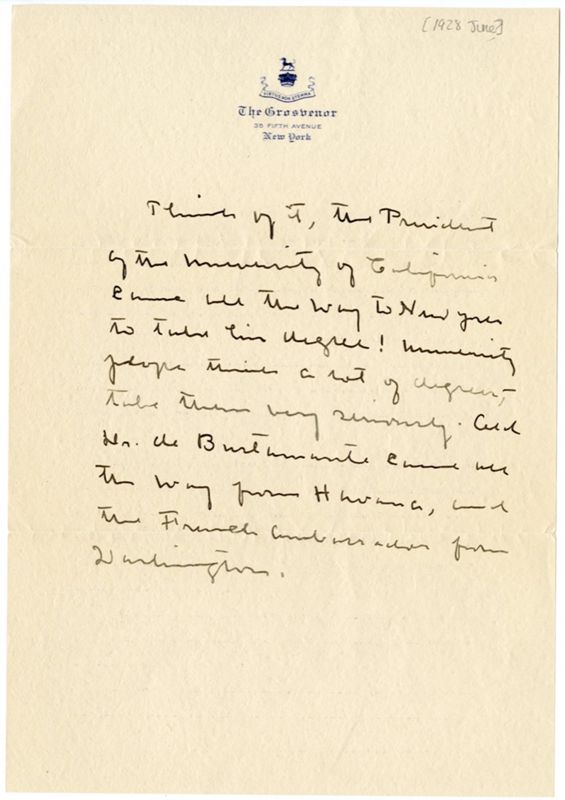 [1928 June]
VIRTUS NON STEMMA
The Grosvenor
35 FIFTH AVENUE
New York
Think of it, the President
of the University of California
came all the way to New York
to take his degree! University
people think a lot of degrees,
take them very seriously. Old
Dr. de Bustamante came all
the way from Havana, and
the French Ambassador from
Washington.